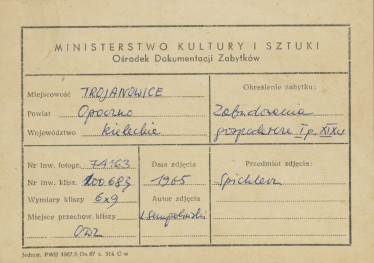 MINISTERSTWO KULTURY I SZTUKI
Ośrodek Dokumentacji Zabytków
Miejscowość TROJANOWICE
Powiat Opoczno
Województwo kieleckie
Określenie zabytku:
Zabudowania
gospodarcze I p. XIX w
Nr inw. fotogr. 74163
Nr inw. klisz. 100683
Wymiary kliszy 6x9
Miejsce przechow. kliszy
ODZ
Data zdjęcia
1965
Autor zdjęcia
Przedmiot zdjęcia:
Spichlerz
Jednor. PWU 1967.5 Os 67 r.